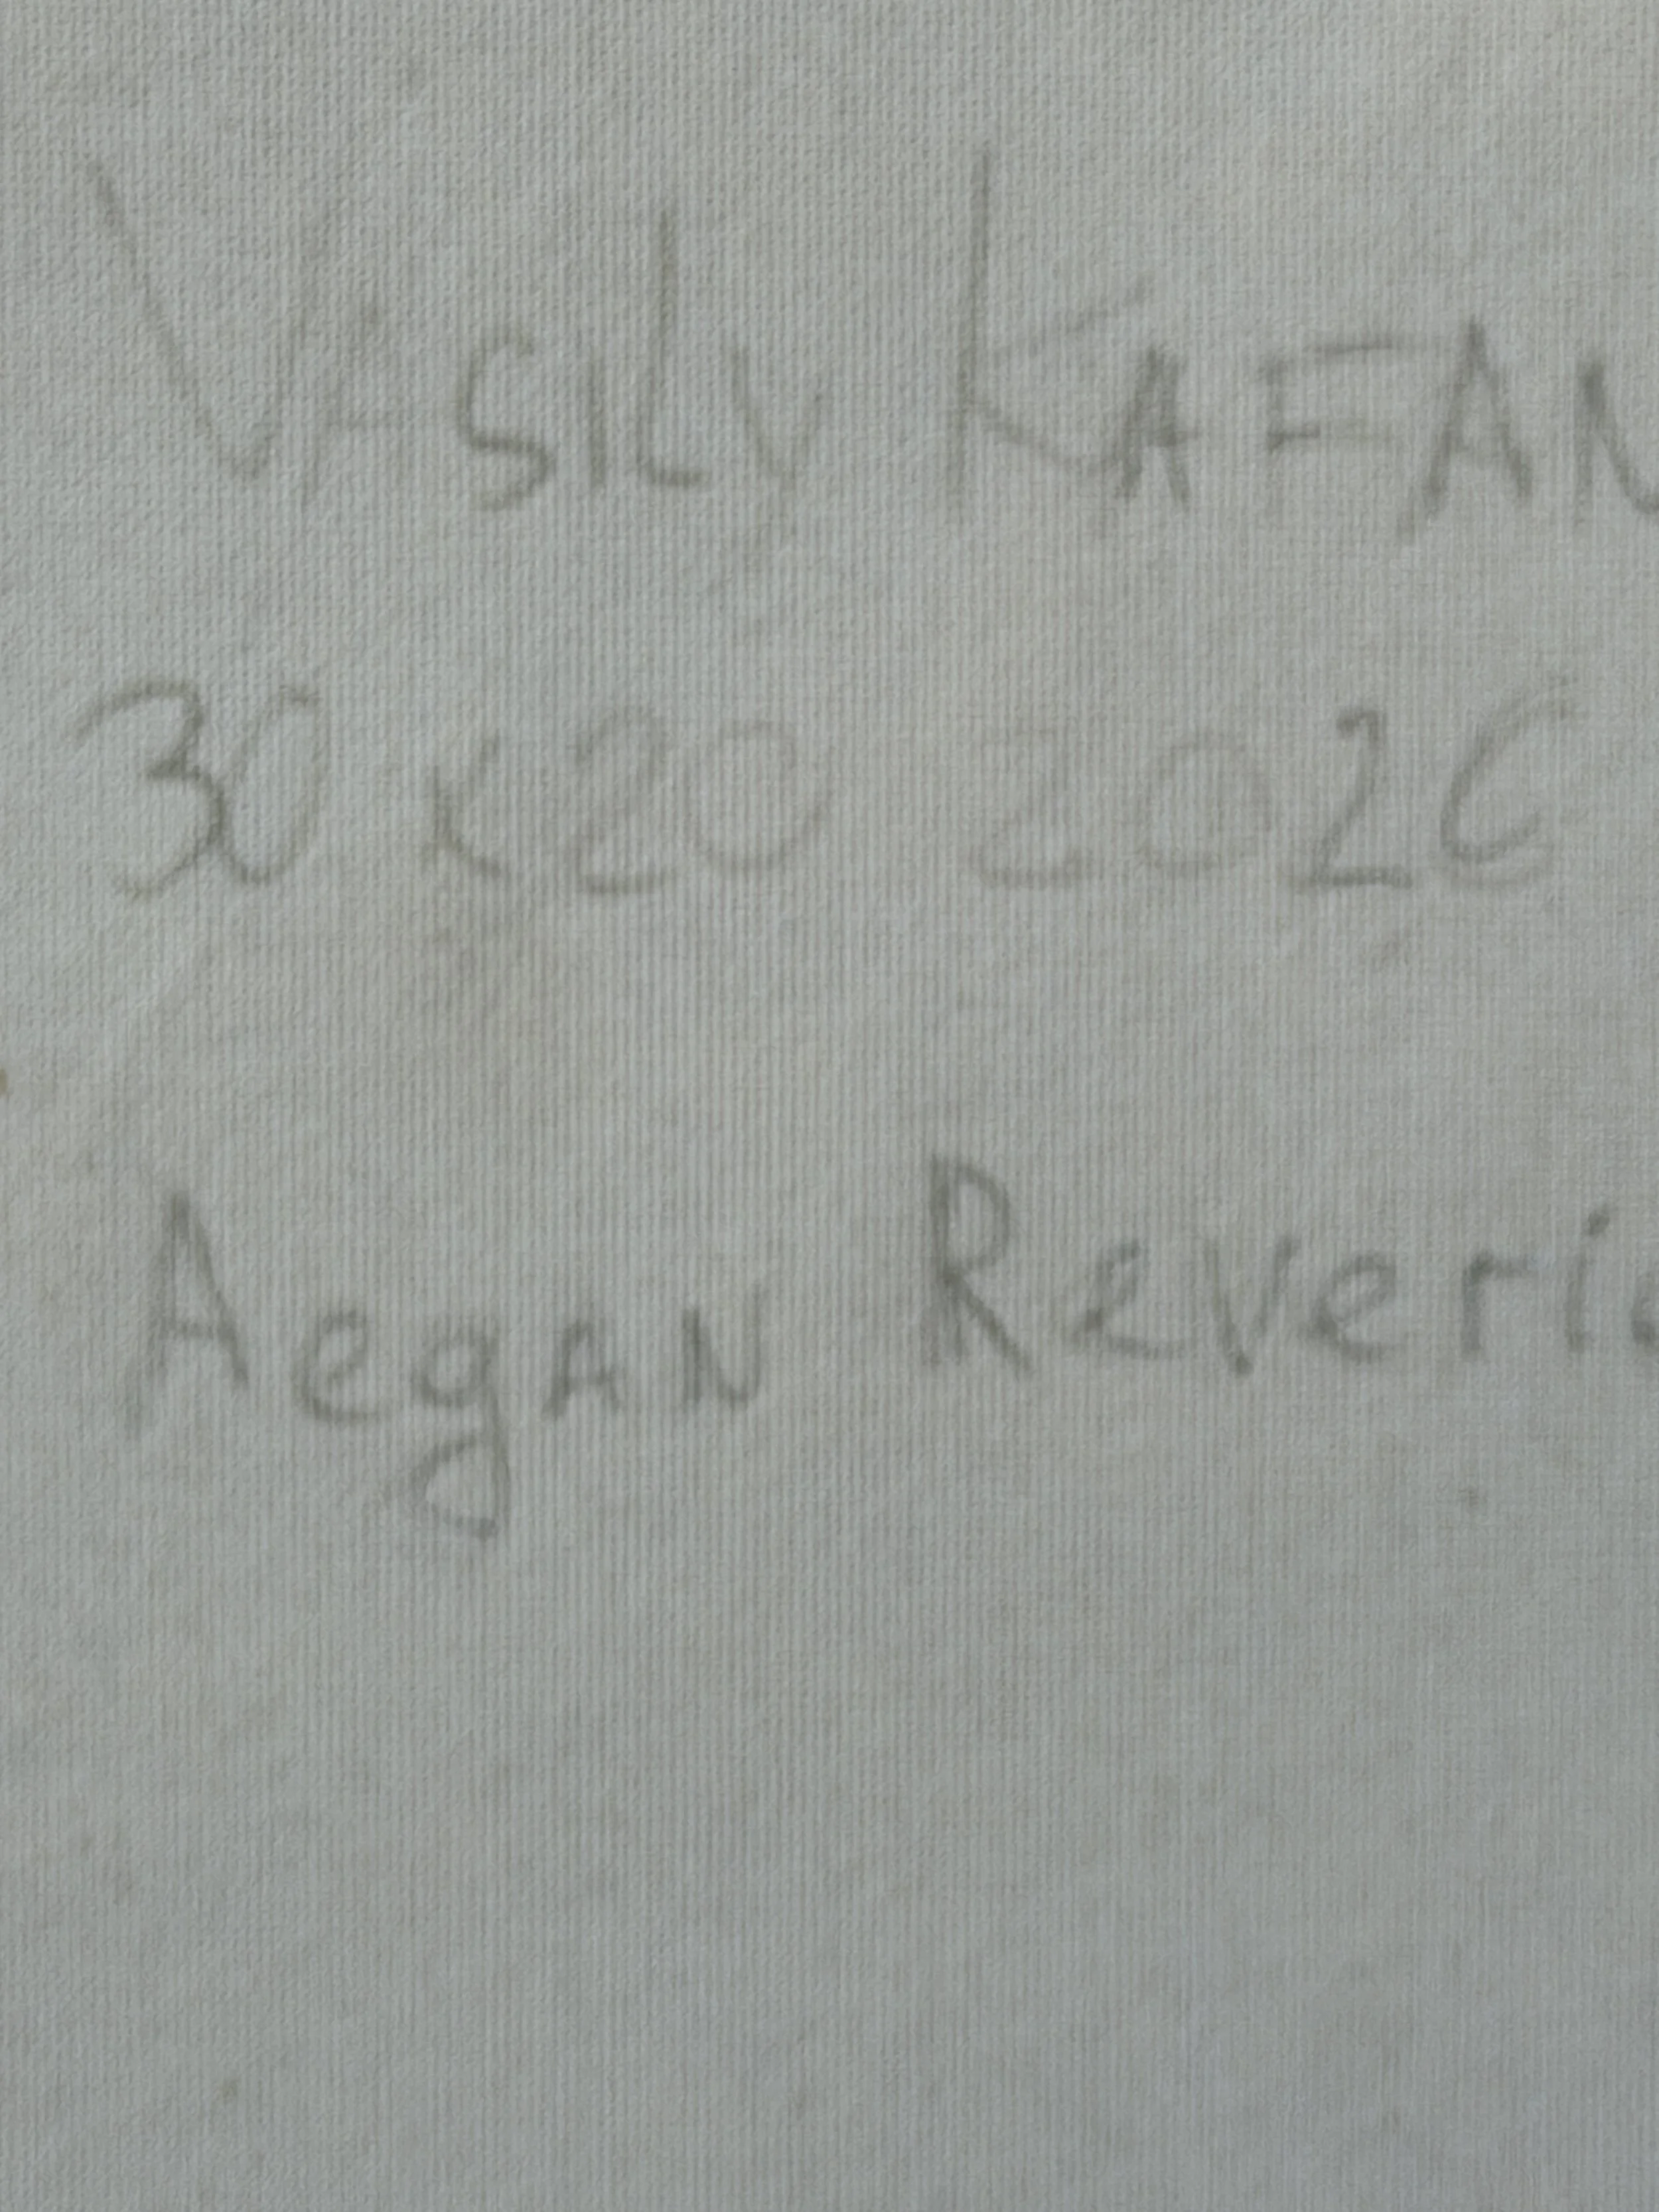 Vasily KAFAN
30x20 2026
Aegan Reverie